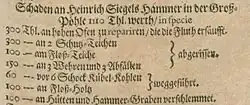 Schaden an Heinrich Siegels Hammer in der Groß-
Pöhle 1110 Thl. werth / in specie
300 Thl. an hohen Ofen zu repariren / die die Fluth ersäufft.
300 — an 2 Schutz-Teichen
100 — am Floß-Teiche } abgerissen.
150 — an 2 Wehren und 4 Abfällen
60 — vor 6 Schock Kübel-Kohlen } weggeführt.
100 — an Floß-Holz
100 — an Hütten und Hammer-Graben verschlemmet.